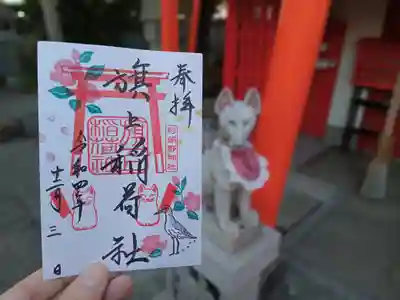 奉拝
旗上稲荷社
令和四年
十二月三日